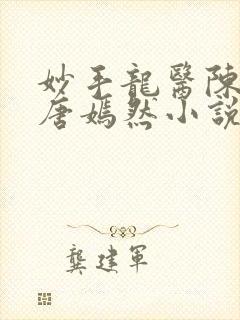 妙手龍醫陳
唐嫣然小說
龔建軍